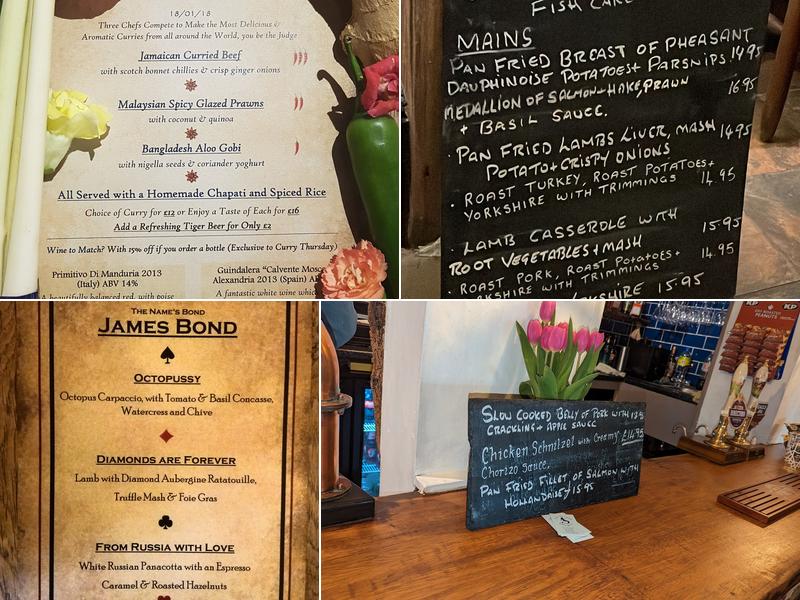 18/01/18
Three Chefs Compete to Make the Most Delicious &
Aromatic Curries from all around the World, you be the Judge
Jamaican Curried Beef
with scotch bonnet chillies & crisp ginger onions
Malaysian Spicy Glazed Prawns
with coconut & quinoa
Bangladesh Aloo Gobi
with nigella seeds & coriander yoghurt
All Served with a Homemade Chapati and Spiced Rice
Choice of Curry for £12 or Enjoy a Taste of Each for £16
Add a Refreshing Tiger Beer for Only £2
Wine to Match? With 15% off if you order a bottle (Exclusive to Curry Thursday)
Primitivo Di Manduria 2013
(Italy) ABV 14%
A beautifully balanced red, with poise
Guindalera "Calvente Mosc
Alexandria 2013 (Spain)
A fantastic white wine which
FISH CAKE
MAINS
PAN FRIED BREAST OF PHEASANT
DAUPHINOISE POTATOES + PARSNIPS 14.95
MEDALLION OF SALMON + HAKE, PRAWN
+ BASIL SAUCE. 16.95
· PAN FRIED LAMBS LIVER, MASH 14.95
POTATO + CRISPY ONIONS
· ROAST TURKEY, ROAST POTATOES +
YORKSHIRE WITH TRIMMINGS 14.95
· LAMB CASSEROLE WITH 15.95
ROOT VEGETABLES + MASH
· ROAST PORK, ROAST POTATOES + 14.95
YORKSHIRE WITH TRIMMINGS
YORKSHIRE 15.95
The Name's Bond
James Bond
Octopussy
Octopus Carpaccio, with Tomato & Basil Concasse,
Watercress and Chive
Diamonds are Forever
Lamb with Diamond Aubergine Ratatouille,
Truffle Mash & Foie Gras
From Russia with Love
White Russian Panacotta with an Espresso
Caramel & Roasted Hazelnuts
SLOW COOKED BELLY OF PORK WITH 13.95
CRACKLING + APPLE SAUCE
Chicken Schnitzel with Creamy £14.95
Chorizo Sauce.
PAN FRIED FILLET OF SALMON WITH
HOLLANDAISE £15.95
KP
KP
PEANUTS